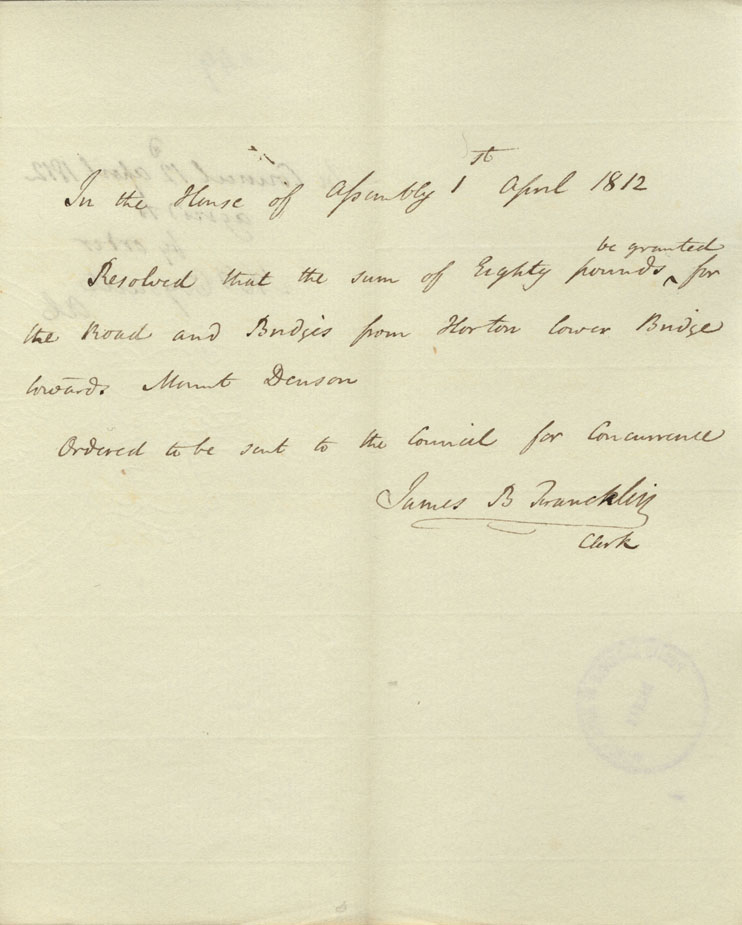 In the House of Assembly 1st April 1812
Resolved that the sum of Eighty pounds be granted for
the Road and Bridges from Horton lower Bridge
towards Mount Denson
Ordered to be sent to the Council for Concurrence
James B Francklin
Clerk